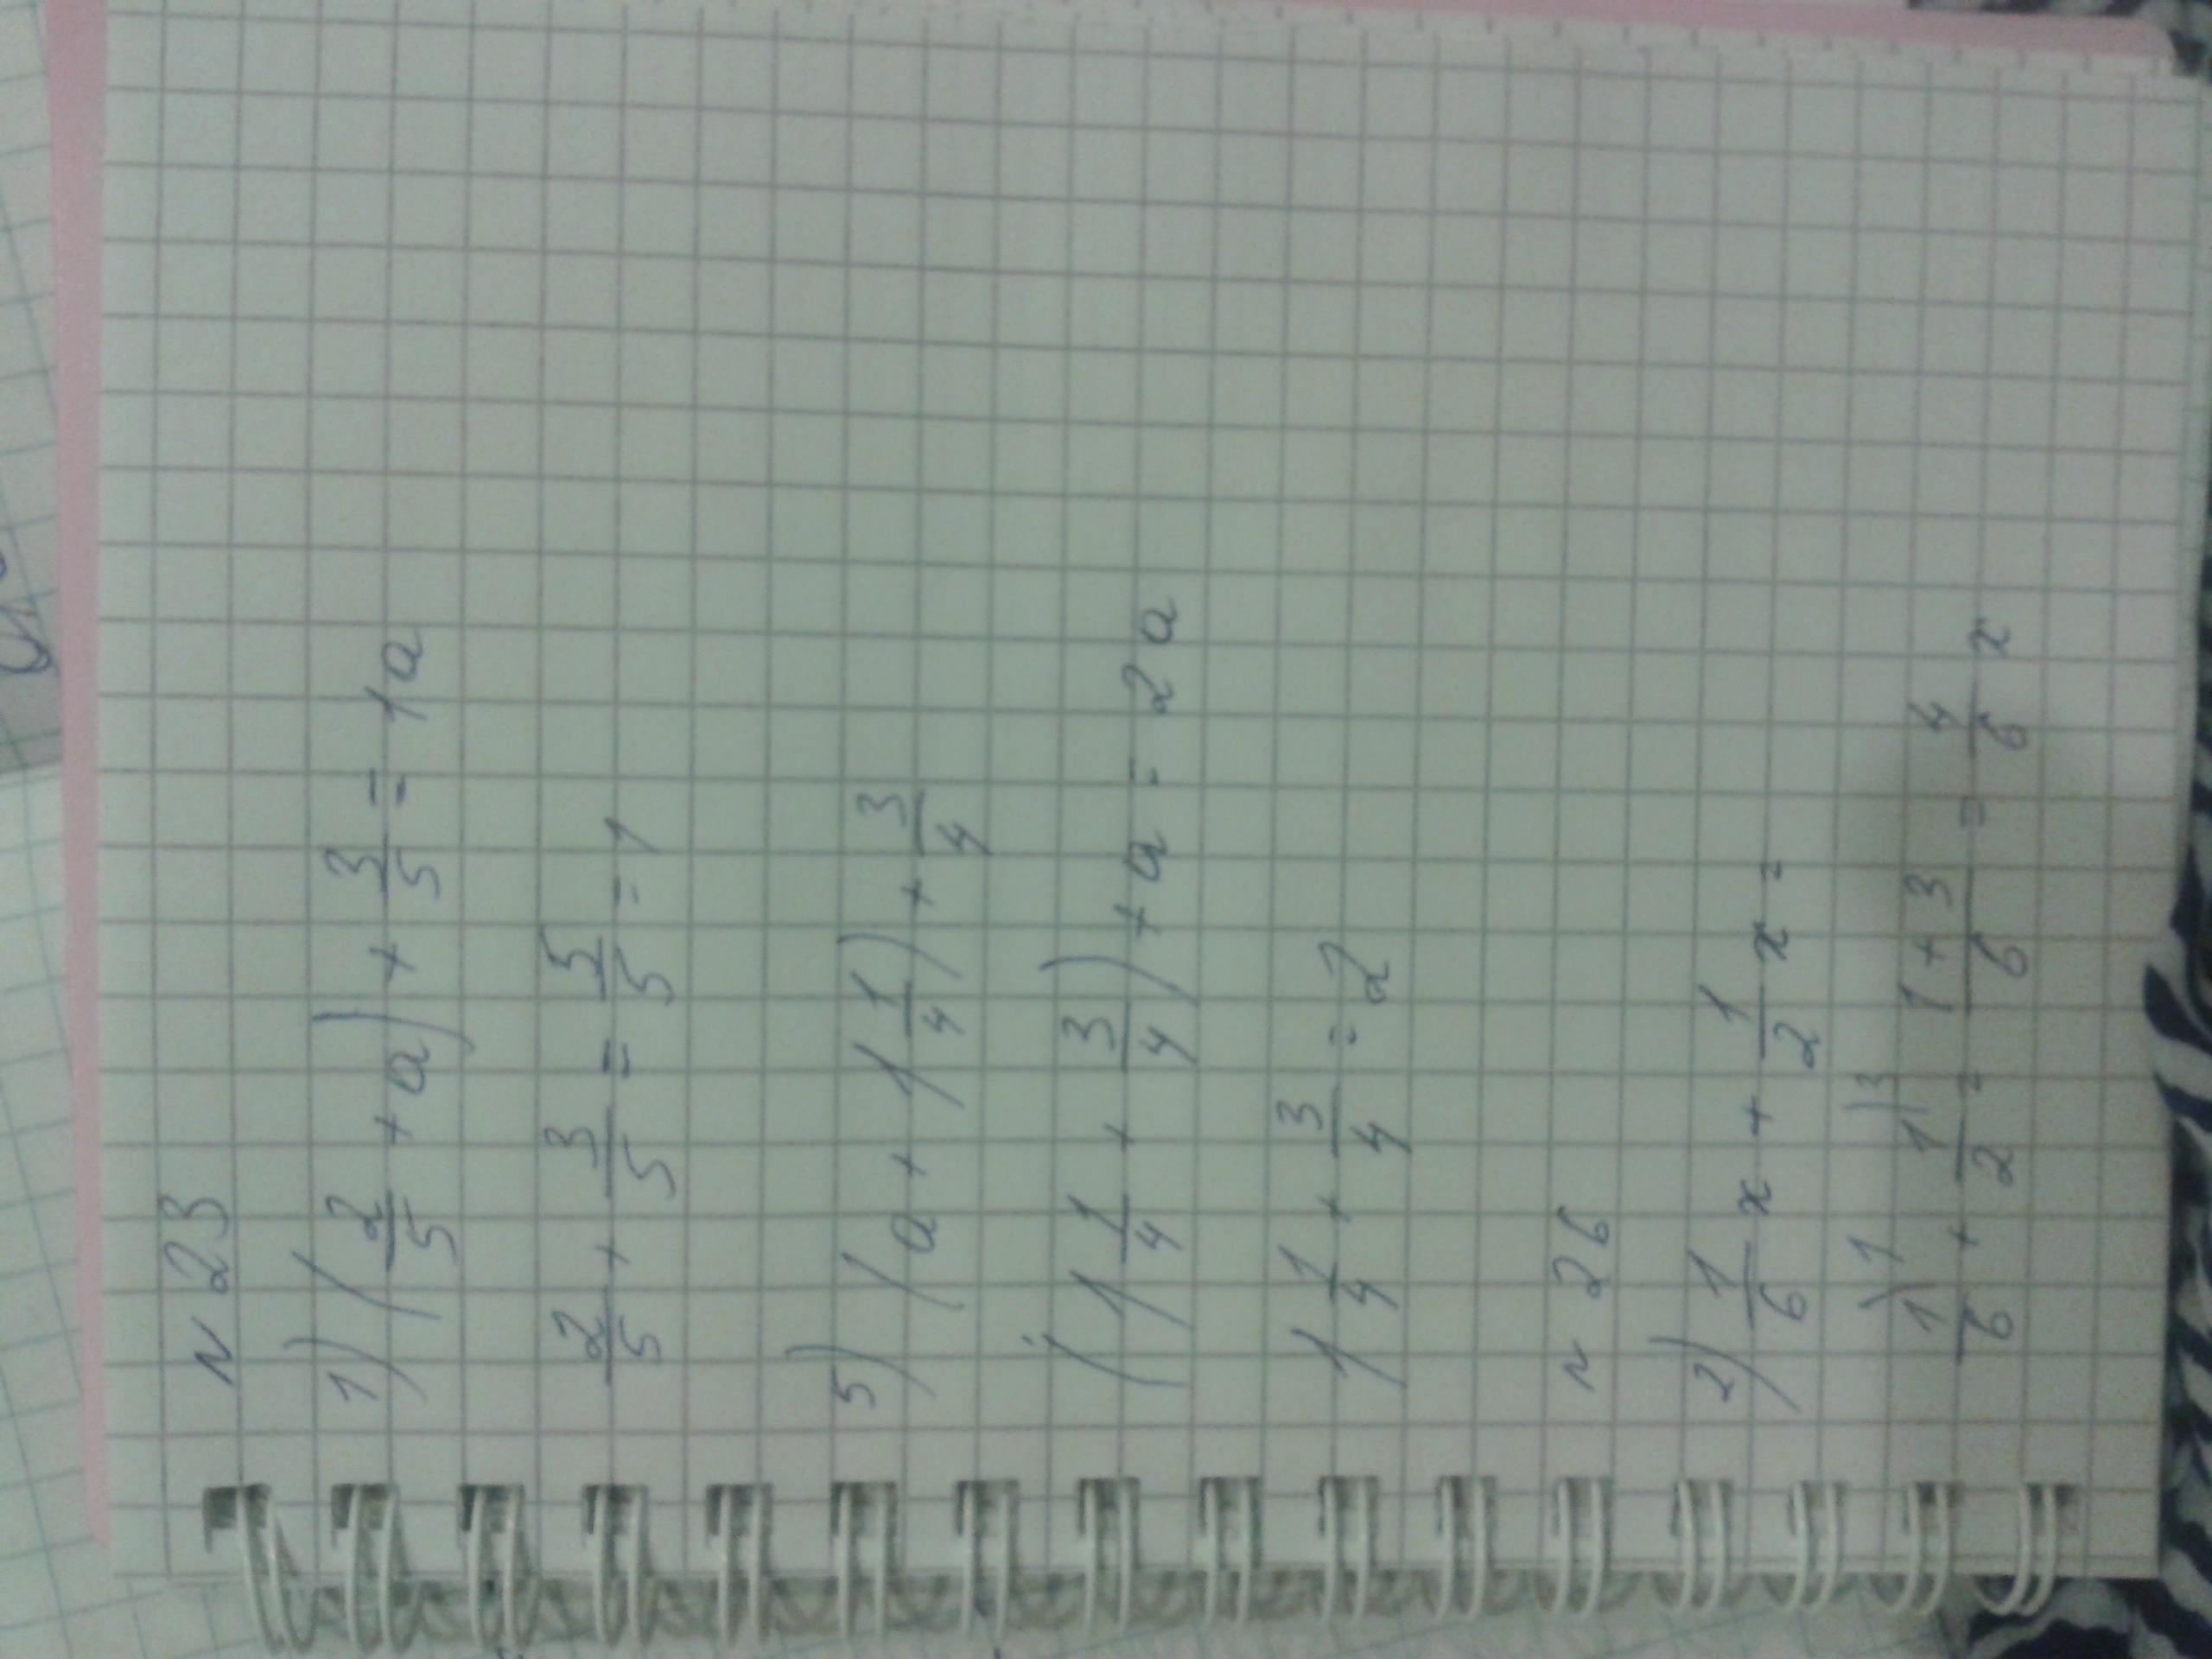 N 23
1) (2/5 + a) + 3/5 = 1a
2/5 + 3/5 = 5/5 = 1
5) (a + 1 1/4) + 3/4
(1 1/4 + 3/4) + a = 2a
1 1/4 + 3/4 = 2
N 26
2) 1/6 x + 1/2 x =
1/6 + 1/2 = (1 + 3)/6 = 4/6 x